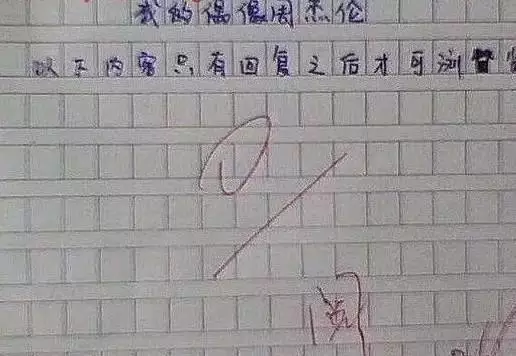 我的偶像周杰伦
以下内容只有回复之后才可浏
阅